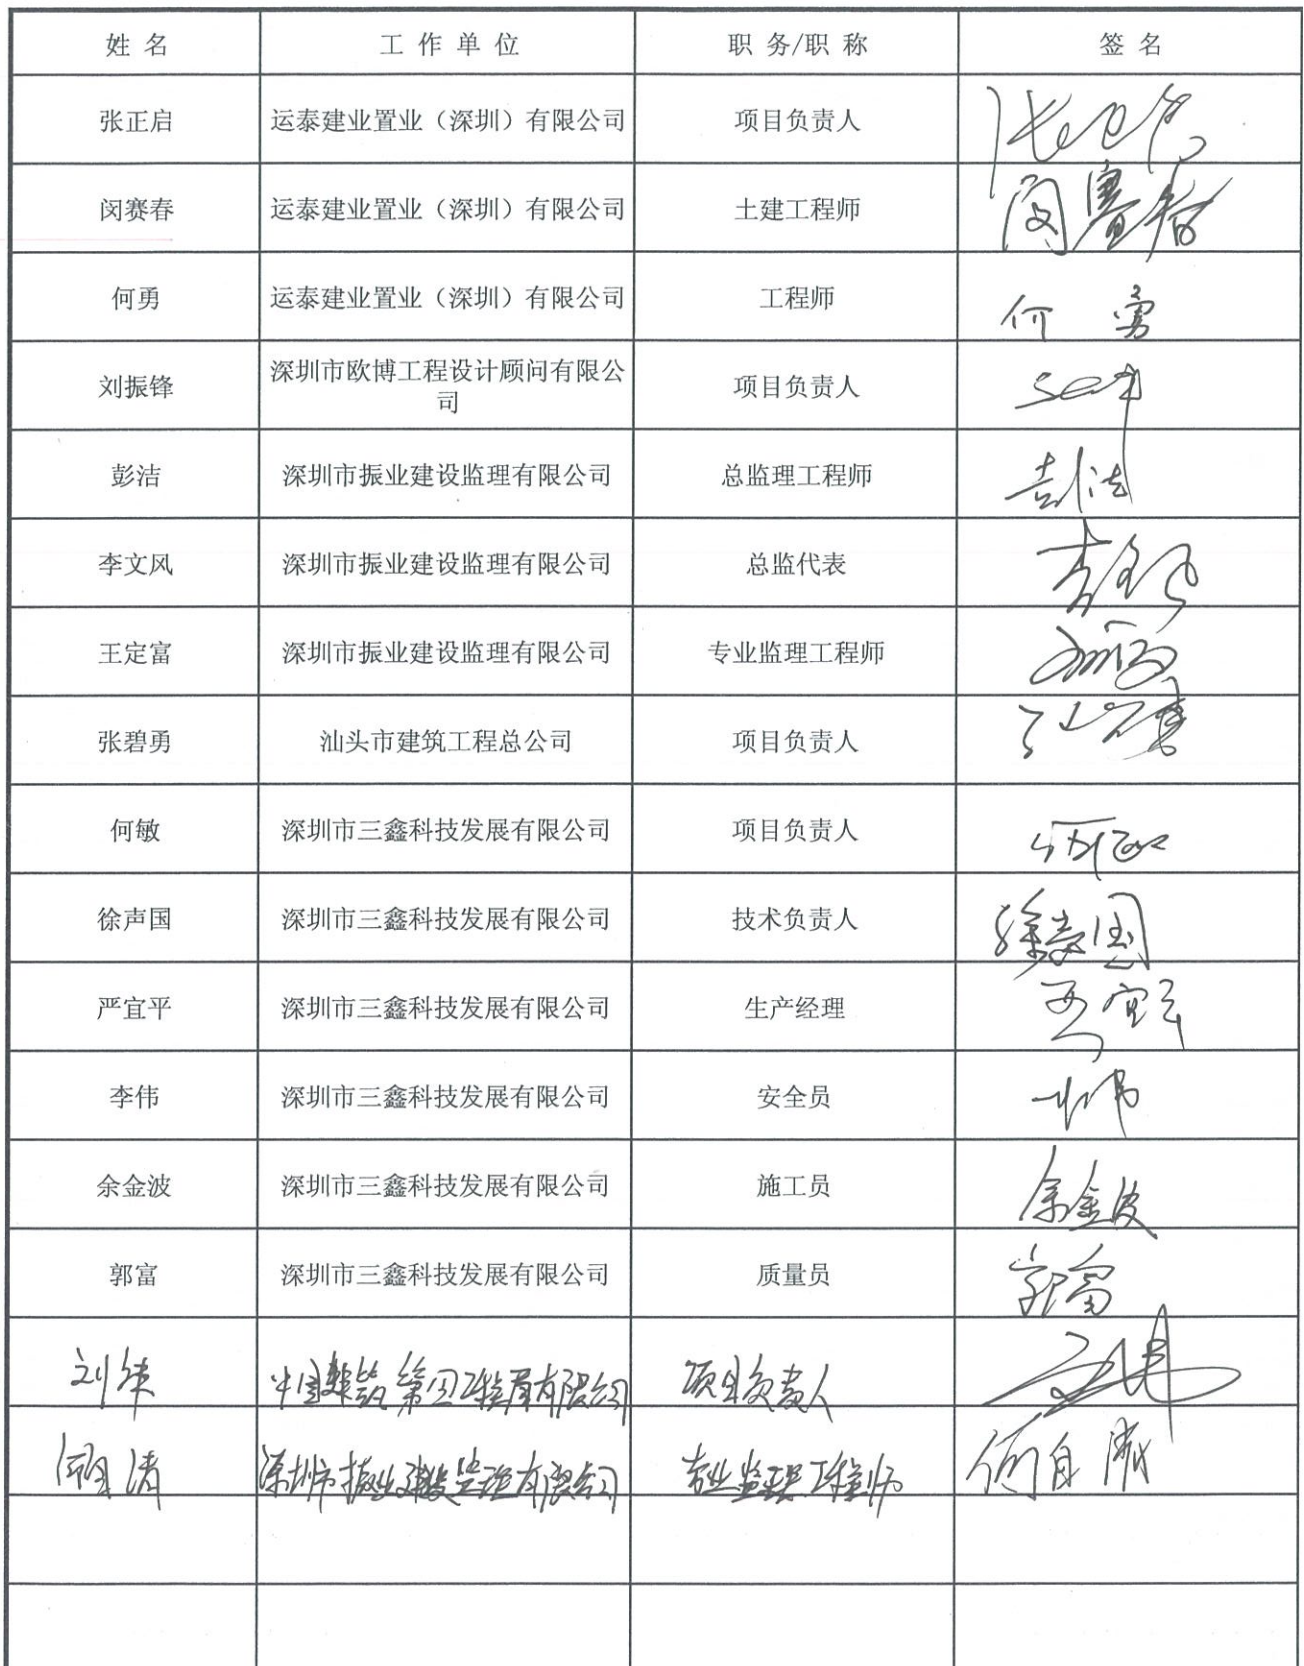 姓 名 工 作 单 位 职 务/职 称 签 名
张正启 运泰建业置业（深圳）有限公司 项目负责人
闵赛春 运泰建业置业（深圳）有限公司 土建工程师 闵赛春
何勇 运泰建业置业（深圳）有限公司 工程师 何勇
刘振锋 深圳市欧博工程设计顾问有限公
司 项目负责人
彭洁 深圳市振业建设监理有限公司 总监理工程师 彭洁
李文风 深圳市振业建设监理有限公司 总监代表 李文风
王定富 深圳市振业建设监理有限公司 专业监理工程师
张碧勇 汕头市建筑工程总公司 项目负责人
何敏 深圳市三鑫科技发展有限公司 项目负责人
徐声国 深圳市三鑫科技发展有限公司 技术负责人 徐声国
严宜平 深圳市三鑫科技发展有限公司 生产经理 严宜平
李伟 深圳市三鑫科技发展有限公司 安全员 李伟
余金波 深圳市三鑫科技发展有限公司 施工员 余金波
郭富 深圳市三鑫科技发展有限公司 质量员 郭富
中国建筑第四工程局有限公司 项目负责人
深圳市振业建设监理有限公司 专业监理工程师